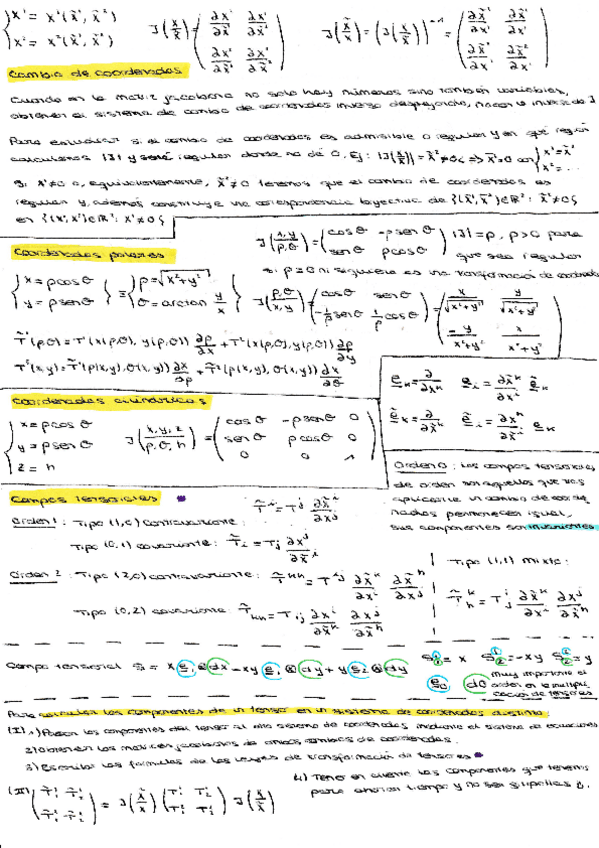 x¹ = x¹(x̃¹, x̃²)
x² = x²(x̃¹, x̃²)
J(x/x̃) = (∂x¹/∂x̃¹ ∂x¹/∂x̃² ∂x²/∂x̃¹ ∂x²/∂x̃²)
J(x̃/x) = (J(x/x̃))⁻¹ = (∂x̃¹/∂x¹ ∂x̃¹/∂x² ∂x̃²/∂x¹ ∂x̃²/∂x²)
Cambio de coordenadas
Cuando en la matriz jacobiana no solo hay números sino también variables,
obtener el sistema de cambio de coordenadas inverso despejando, hacer la inversa de J
Para estudiar si el cambio de coordenadas es admisible o regular y en qué región
calculamos |J| y será regular donde no dé 0, Ej: |J(x/x̃)| = x̃² ≠ 0
Si x² ≠ 0 o, equivalentemente, x̃² ≠ 0 tenemos que el cambio de coordenadas es
regular y, además construye una correspondencia biyectiva de {(x̃¹, x̃²) ∈ R² : x̃² ≠ 0}
en {(x¹, x²) ∈ R² :
Coordenadas polares
J(x,y/ρ,θ) = (cosθ -ρsenθ senθ ρcosθ) |J| = ρ, ρ > 0 para
que sea regular
si ρ = 0 ni siquiera es una transformación de coordenadas
x = ρcosθ
y = ρsenθ
ρ = √x²+y²
θ = arctan y/x
J(ρ,θ/x,y) = (cosθ senθ -1/ρ senθ 1/ρ cosθ) = (x/√x²+y² y/√x²+y² -y/x²+y² x/x²+y²)
T̃¹(ρ,θ) = T¹(x(ρ,θ), y(ρ,θ)) ∂ρ/∂x + T²(x(ρ,θ), y(ρ,θ)) ∂ρ/∂y
T¹(x,y) = T̃¹(ρ(x,y), θ(x,y)) ∂x/∂ρ + T̃²(ρ(x,y), θ(x,y)) ∂x/∂θ
e_k = ∂/∂x^k e_i = ∂x̃^k/∂x^i ẽ_k
ẽ_k = ∂/∂x̃^k ẽ_i = ∂x^k/∂x̃^i e_k
Coordenadas cilíndricas
x = ρcosθ
y = ρsenθ
z = h
J(x,y,z/ρ,θ,h) = (cosθ -ρsenθ 0 senθ ρcosθ 0 0 0 1)
Orden 0: Los campos tensoriales
de orden son aquellos que tras
aplicarle un cambio de coorde
nadas permanecen igual,
sus componentes son invariantes
Campos tensoriales
Orden 1: Tipo (1,0) contravariante: T̃^i = T^j ∂x̃^i/∂x^j
Tipo (0,1) covariante: T̃_i = T_j ∂x^j/∂x̃^i
Orden 2: Tipo (2,0) contravariante: T̃^kh = T^ij ∂x̃^k/∂x^i ∂x̃^h/∂x^j
Tipo (0,2) covariante: T̃_kh = T_ij ∂x^i/∂x̃^k ∂x^j/∂x̃^h
Tipo (1,1) mixto:
T̃^k_h = T^i_j ∂x̃^k/∂x^i ∂x^j/∂x̃^h
Campo tensorial S = x e₁ ⊗ dx - xy e₁ ⊗ dy + y e₂ ⊗ dy
S¹₁ = x S¹₂ = -xy S²₂ = y
muy importante el
orden en la multipli
cación de tensores
Para calcular las componentes de un tensor en un sistema de coordenadas distinto:
(I) 1) Pasar las componentes del tensor al otro sistema de coordenadas mediante el sistema de ecuaciones
2) Obtener las matrices jacobianas de ambos cambios de coordenadas.
3) Escribir las fórmulas de las leyes de transformación de tensores
4) Tener en cuenta las componentes que tenemos
para ahorrar tiempo y no ser
(II) (T̃¹₁ T̃¹₂ T̃²₁ T̃²₂) = J(x̃/x) (T¹₁ T¹₂ T²₁ T²₂) J(x/x̃)